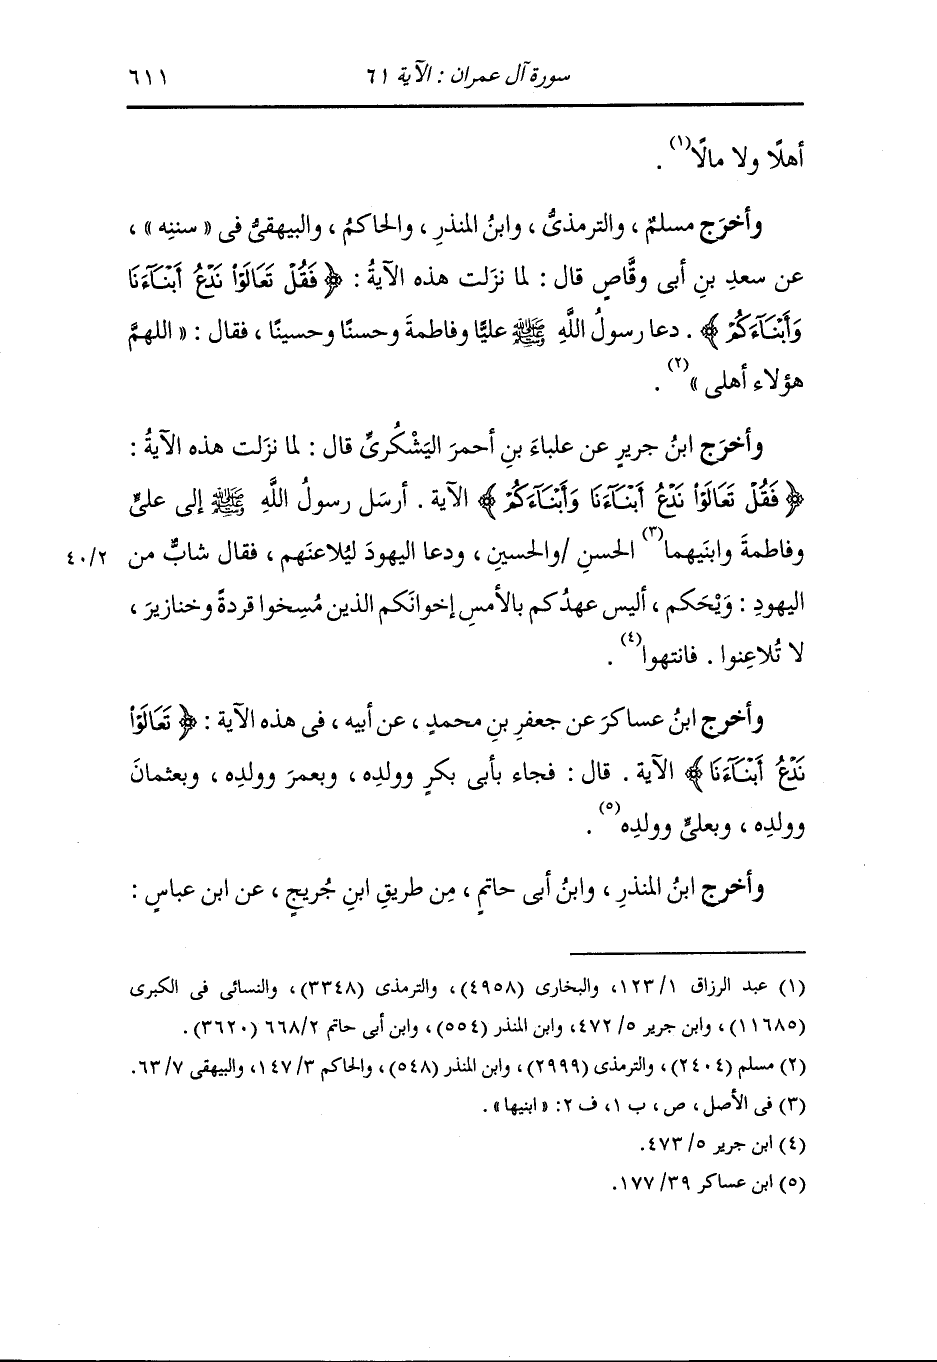 سورة آل عمران : الآية ٦١ ٦١١
أهلًا ولا مالًا(١) .
وأخرَج مسلمٌ ، والترمذىُّ ، وابنُ المنذرِ ، والحاكمُ ، والبيهقىُّ فى « سننِه » ،
عن سعدِ بنِ أبى وقَّاصٍ قال : لما نزَلت هذه الآيةُ : ﴿ فَقُلْ تَعَالَوْا۟ نَدْعُ أَبْنَآءَنَا
وَأَبْنَآءَكُمْ ﴾ . دعا رسولُ اللَّهِ ﷺ عليًّا وفاطمةَ وحسنًا وحسينًا ، فقال : « اللهمَّ
هؤلاء أهلى »(٢) .
وأخرَج ابنُ جريرٍ عن علباءَ بنِ أحمرَ اليَشْكُرىِّ قال : لما نزَلت هذه الآيةُ :
﴿ فَقُلْ تَعَالَوْا۟ نَدْعُ أَبْنَآءَنَا وَأَبْنَآءَكُمْ ﴾ الآية . أرسَل رسولُ اللَّهِ ﷺ إلى علىٍّ
وفاطمةَ وابنَيهما(٣) الحسنِ /والحسينِ ، ودعا اليهودَ ليُلاعنَهم ، فقال شابٌّ من ٤٠/٢
اليهودِ : وَيْحَكم ، أليس عهدُكم بالأمسِ إخوانَكم الذين مُسِخوا قردةً وخنازيرَ ،
لا تُلاعِنوا . فانتهوا(٤) .
وأخرج ابنُ عساكرَ عن جعفرِ بنِ محمدٍ ، عن أبيه ، فى هذه الآية : ﴿ تَعَالَوْا۟
نَدْعُ أَبْنَآءَنَا ﴾ الآية . قال : فجاء بأبى بكرٍ وولدِه ، وبعمرَ وولدِه ، وبعثمانَ
وولدِه ، وبعلىٍّ وولدِه(٥) .
وأخرج ابنُ المنذرِ ، وابنُ أبى حاتمٍ ، مِن طريقِ ابنِ جُريجٍ ، عن ابن عباسٍ :
(١) عبد الرزاق ١/ ١٢٣، والبخارى (٤٩٥٨)، والترمذى (٣٣٤٨)، والنسائى فى الكبرى
(١١٦٨٥)، وابن جرير ٥/ ٤٧٢، وابن المنذر (٥٥٤)، وابن أبى حاتم ٦٦٨/٢ (٣٦٢٠).
(٢) مسلم (٢٤٠٤)، والترمذى (٢٩٩٩)، وابن المنذر (٥٤٨)، والحاكم ٣/ ١٤٧، والبيهقى ٧/ ٦٣.
(٣) فى الأصل، ص، ب ١، ف ٢: « ابنيها» .
(٤) ابن جرير ٥/ ٤٧٣.
(٥) ابن عساكر ٣٩/ ١٧٧.